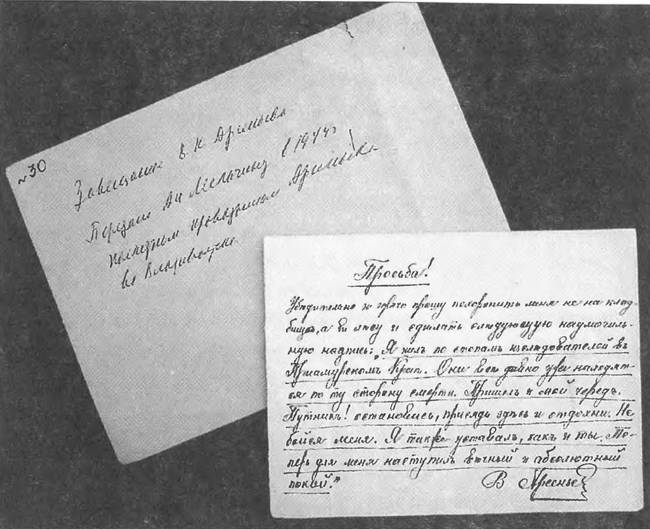 №30
Завещание В. К. Арсеньева
Передано Ан. Мельчину в 1944 г
последним проводником Арсеньева
во Владивостоке
Просьба!
Убѣдительно и горячо прошу похоронить меня не на клад-
бищѣ, а въ лѣсу и сдѣлать слѣдующую надмогиль-
ную надпись: "Я шелъ по стопамъ изслѣдователей въ
Приамурскомъ Краѣ. Они всѣ давно уже находят-
ся по ту сторону смерти. Пришелъ и мой чередъ.
Путникъ! остановись, присядь здѣсь и отдохни. Не
бойся меня. Я также уставалъ, какъ и ты. Те-
перь для меня наступилъ вѣчный и абсолютный
покой."
В Арсеньев